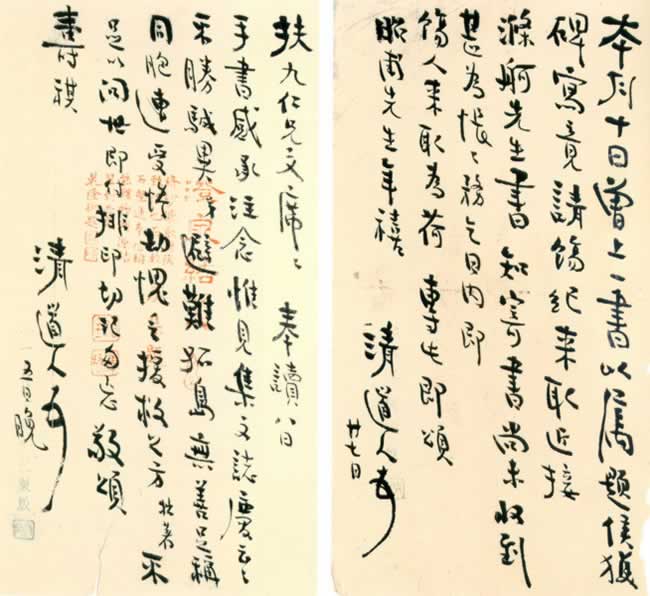 本月十日曾上一書以属題侯獲
碑寫竟請飭紀来取近接
滌舸先生書知寄書尚未收到
甚為悵〻務乞日内即
飭人来取為荷 專此即頌
先生年禧
清道人
廿七日
扶九仁兄文席〻 奉讀八日
手書感承注念惟見集文誌慶云〻
不勝駭異 避難孤島無善足稱
同胞連受慘劫愧乏援救之方 拙著不
足以問世即付排印切記勿忘敬頌
祺
清道人
五日晚